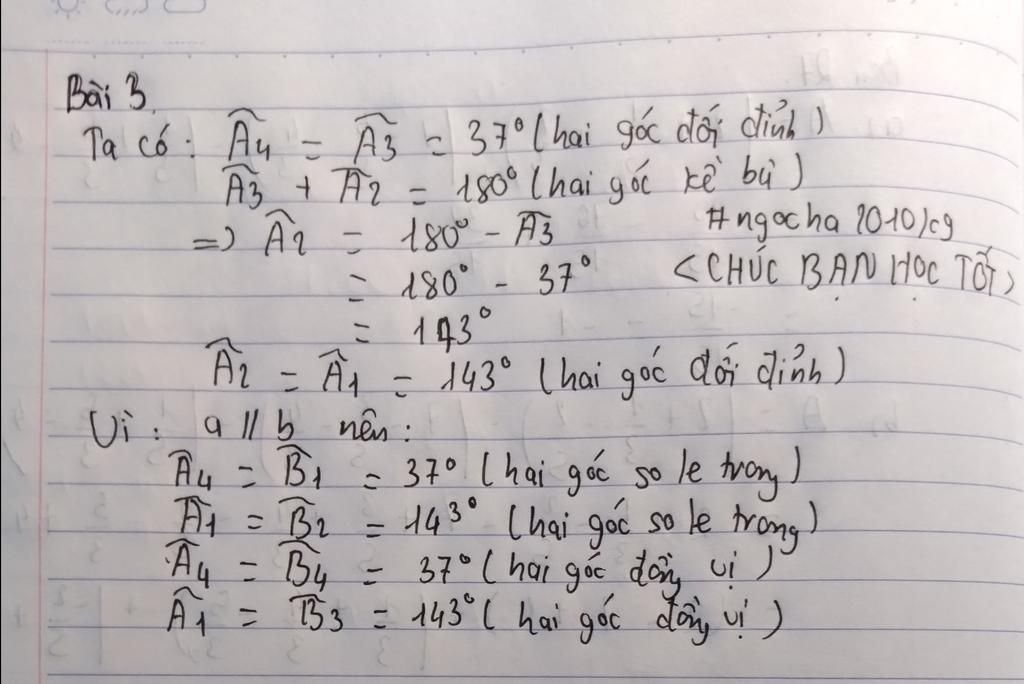 Bài 3
Ta có: Â4 = Â3 = 37° (hai góc đối đỉnh)
Â3 + Â2 = 180° (hai góc kề bù)
=> Â2 = 180° - Â3
#ngocha2010lcg
= 180° - 37°
<CHÚC BẠN HỌC TỐT>
= 143°
Â2 = Â1 = 143° (hai góc đối đỉnh)
Vì: a // b nên:
Â4 = B̂1 = 37° (hai góc so le trong)
Â1 = B̂2 = 143° (hai góc so le trong)
Â4 = B̂4 = 37° (hai góc đồng vị)
Â1 = B̂3 = 143° (hai góc đồng vị)